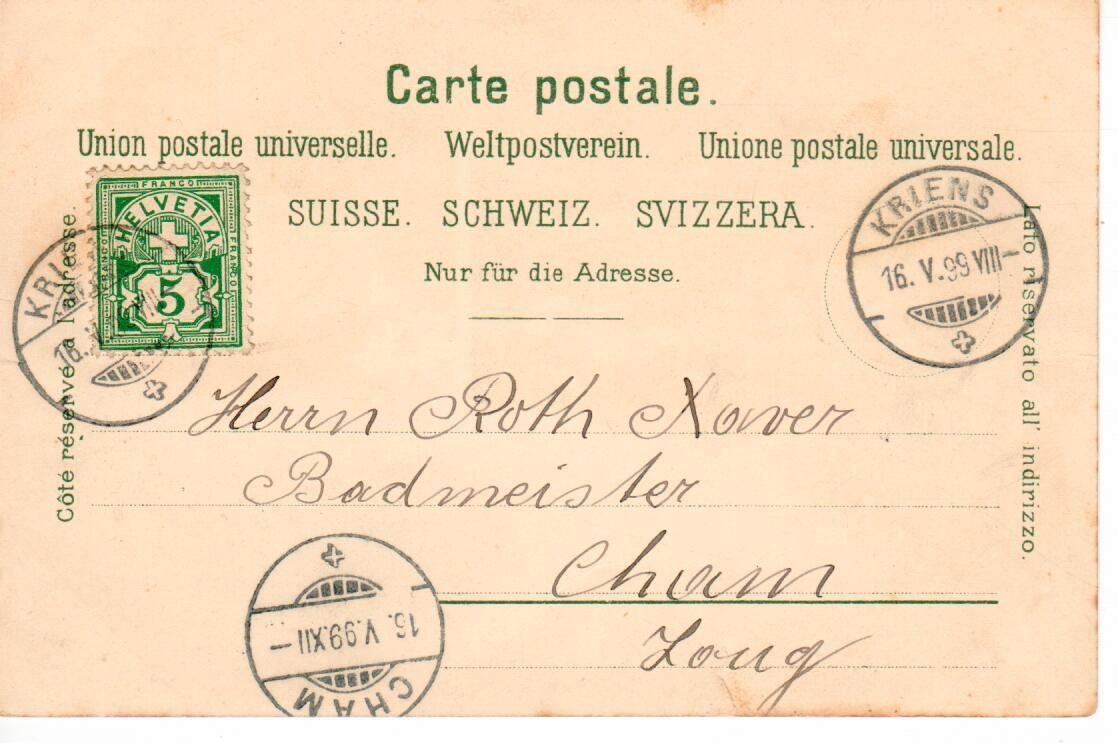 Carte postale.
Union postale universelle. Weltpostverein. Unione postale universale.
SUISSE. SCHWEIZ. SVIZZERA.
Nur für die Adresse.
Côté réservé à l'adresse.
Lato riservato all' indirizzo.
FRANCO
FRANCO
FRANCO
HELVETIA
5
KRIENS
16. V. 99 VIII–
Herrn Roth Xaver
Badmeister
Cham
Zoug
16. V. 99.XII–
CHAM